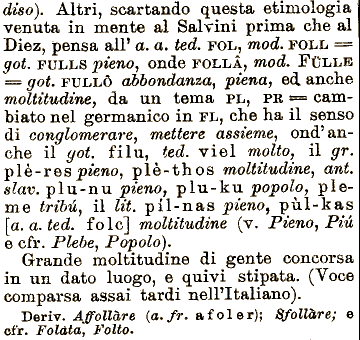 diso). Altri, scartando questa etimologia
venuta in mente al Salvini prima che al
Diez, pensa all' a. a. ted. FOL, mod. FOLL =
got. FULLS pieno, onde FOLLÂ, mod. FÜLLE
= got. FULLÔ abbondanza, piena, ed anche
moltitudine, da un tema PL, PR = cam-
biato nel germanico in FL, che ha il senso
di conglomerare, mettere assieme, ond'an-
che il got. filu, ted. viel molto, il gr.
plè-res pieno, plè-thos moltitudine, ant.
slav. plu-nu pieno, plu-ku popolo, ple-
me tribú, il lit. píl-nas pieno, pùl-kas
[a. a. ted. folc] moltitudine (v. Pieno, Piú
e cfr. Plebe, Popolo).
Grande moltitudine di gente concorsa
in un dato luogo, e quivi stipata. (Voce
comparsa assai tardi nell'Italiano).
Deriv. Affollàre (a. fr. afoler); Sfollàre; e
cfr. Folàta, Folto.